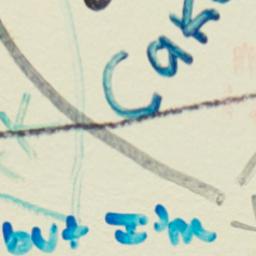 Cak
but I'm